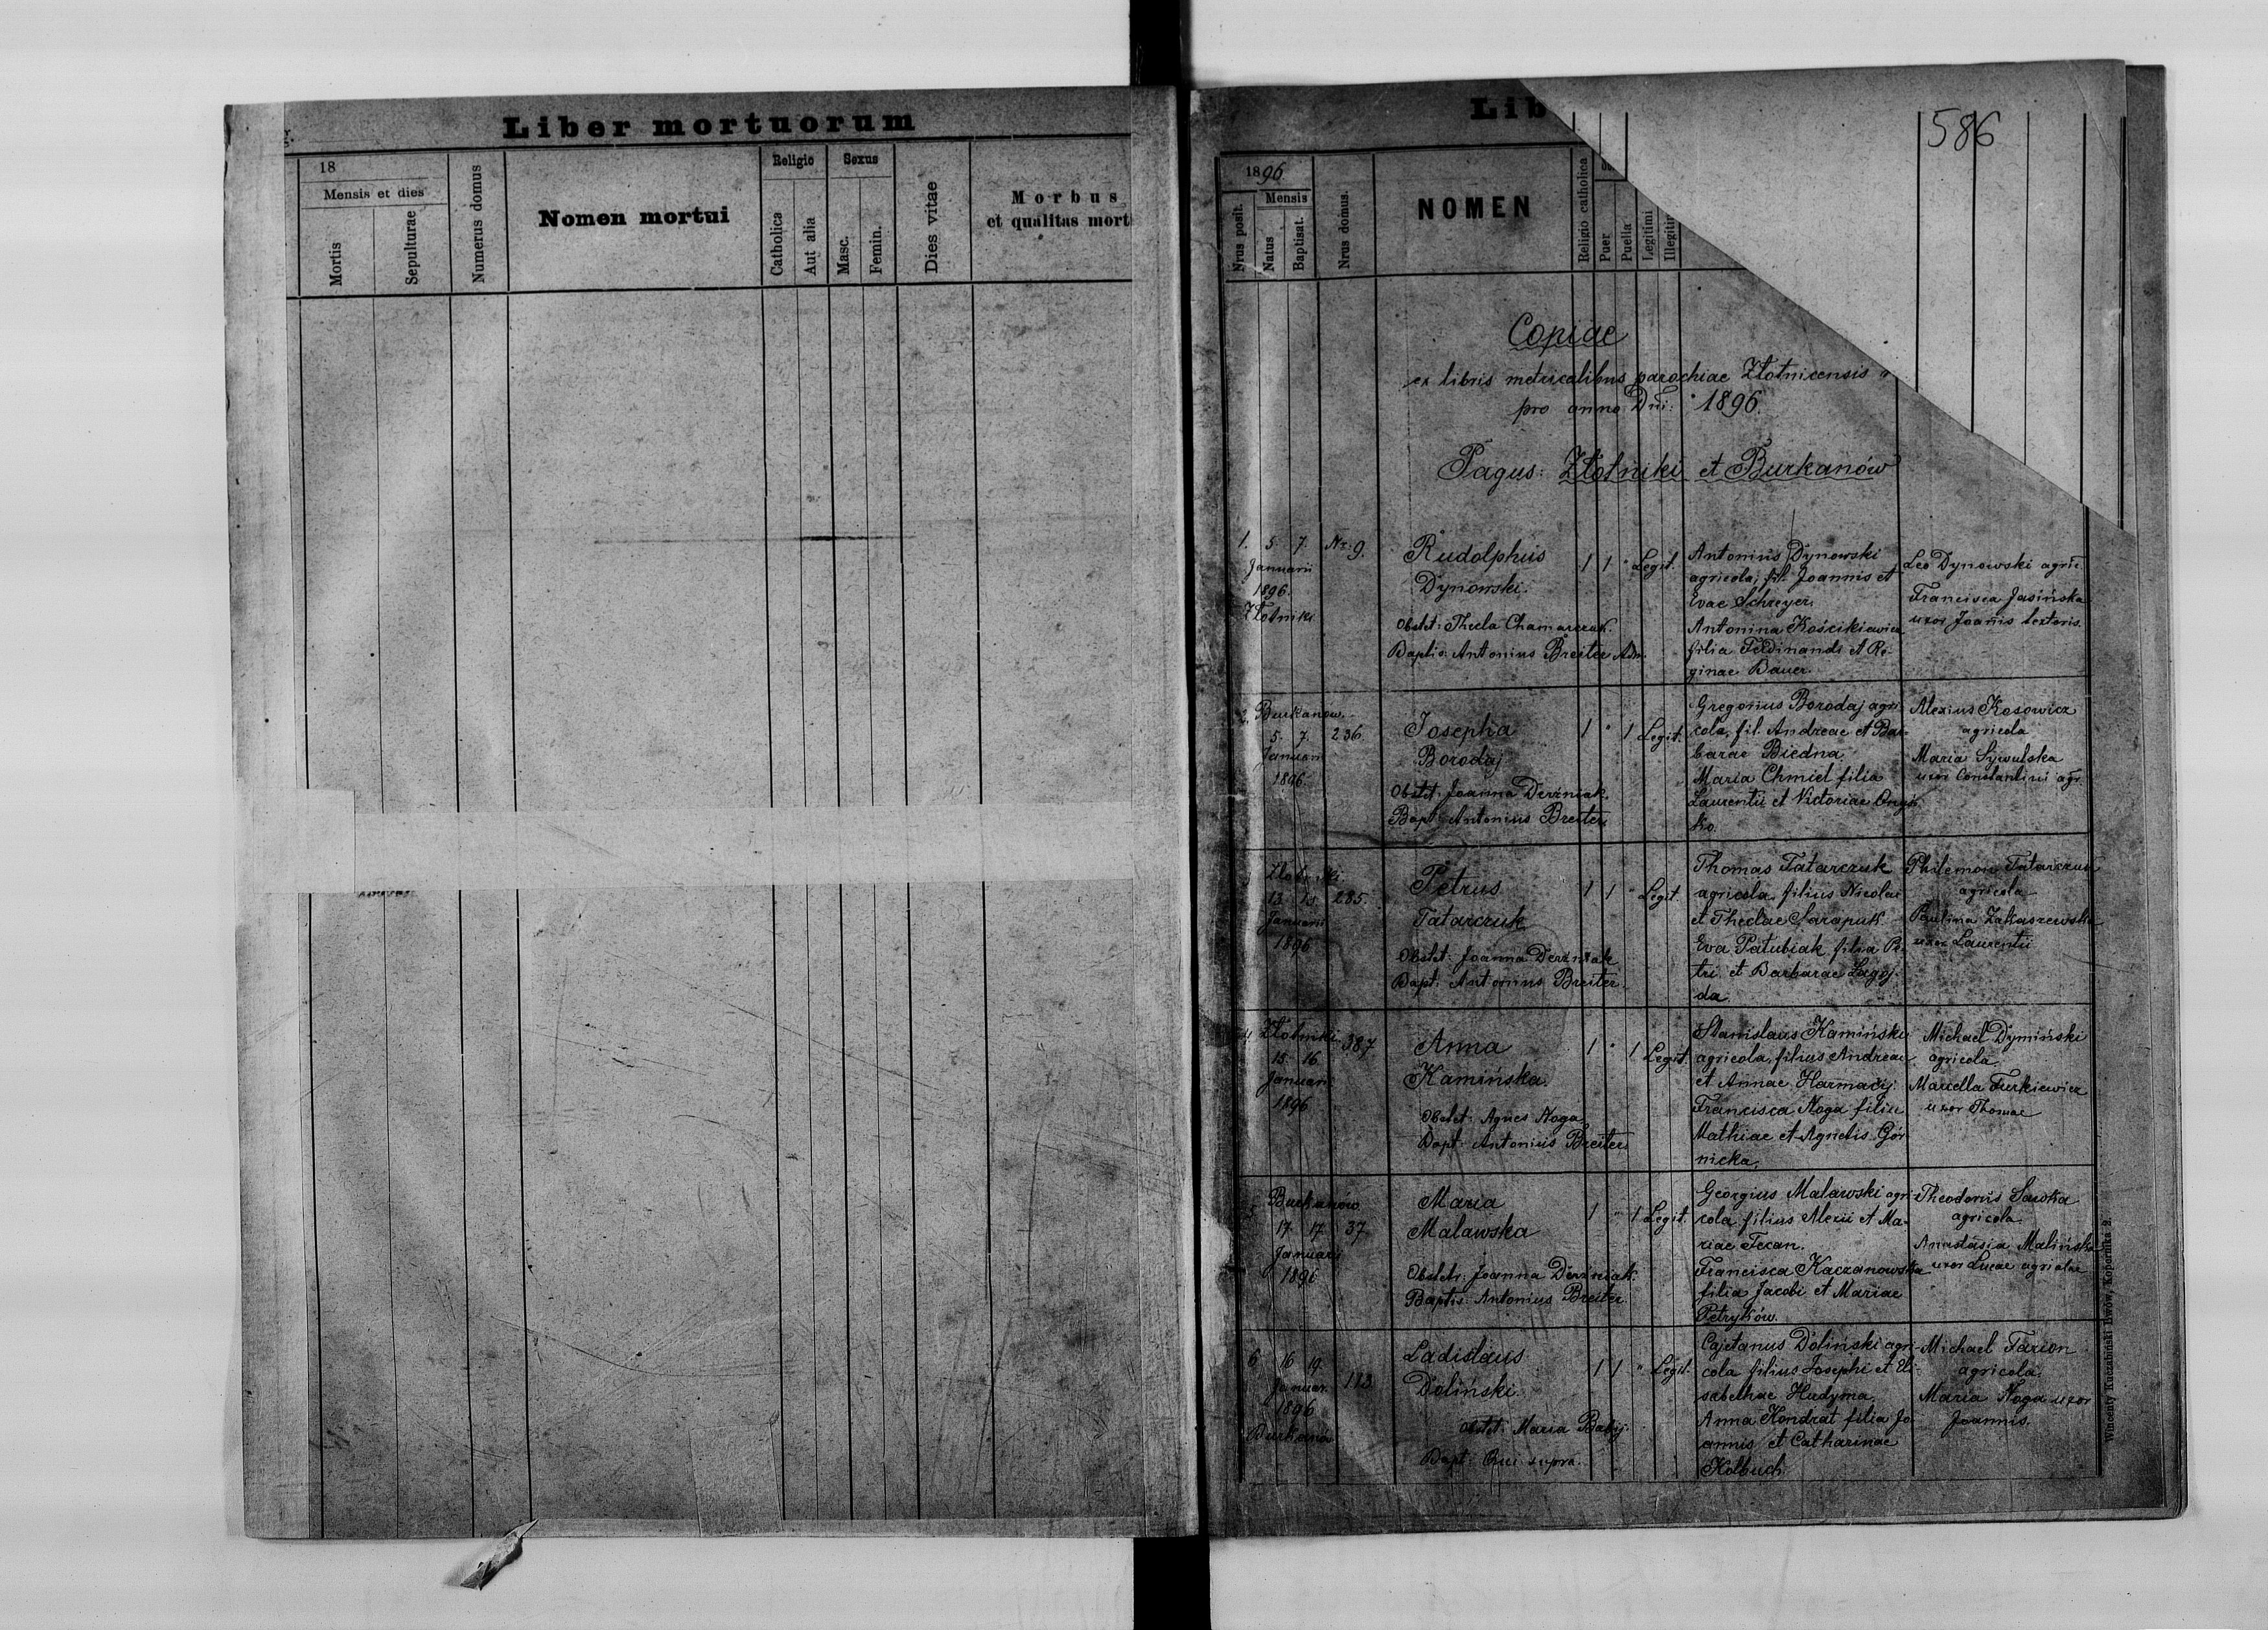 Liber mortuorum
18
Mensis et dies
Mortis
Sepulturae
Numerus domus
Nomen mortui
Religio
Catholica
Aut alia
Sexus
Masc.
Femin.
Dies vitae
Morbus
et qualitas mort
Lib
586
1896
Nrus posit.
Mensis
Natus
Baptisat.
Nrus domus.
NOMEN
Religio catholica
Puer
Puella
Legitimi
Illegitim
Copiae
ex libris metricalibus parochiae Złotnicensis
pro anno Dni: 1896.
Pagus: Złotniki et Burkanów
1. 5. 7. Nr: 9.
Januarii
1896.
Złotniki
Rudolphus
Dynowski.
Obstet: Thecla Chamarczuk.
Baptis: Antonius Breiter Adm.
1 1 " Legit.
Antonius Dynowski
agricola, fil. Joannis et
Evae Schreyer.
Antonina Kościkiewicz
filia Ferdinandi et Re-
ginae Bauer.
Leo Dynowski agric.
Francisca Jasińska
uxor Joanis textoris.
2. Burkanów.
5. 7. 236
Januarii
1896.
Josepha
Borodaj
Obstet: Joanna Derzniak.
Bapt: Antonius Breiter
1 " 1 Legit.
Gregorius Borodaj agri-
cola, fil. Andreae et Bar-
barae Biedna
Maria Chmiel filia
Laurentii et Victoriae
ko.
Alexius Kosowicz
agricola
Maria Sywulska
uxor Constantini agr.
3 Złotniki
13. 285.
Januarii
1896
Petrus
Tatarczuk
Obstet: Joanna Derzniak
Bapt: Antonius Breiter.
1 1 " Legit.
Thomas Tatarczuk
agricola, filius Nicolai
et Theclae Sarapuk.
Eva Patubiak filia Pe-
tri et Barbarae Łagoj-
da.
Philemon Tatarczuk
agricola
Paulina Zakaszewska
uxor Laurentii
4 Złotniki
15. 16 387
Januarii
1896
Anna
Kamińska.
Obstet: Agnes Noga
Bapt: Antonius Breiter
1 " 1 Legit.
Stanislaus Kamiński
agricola, filius Andreae
et Annae Harmacij.
Francisca Noga filia
Mathiae et Agnetis Gór-
nicka.
Michael Dymiński
agricola
Marcella Turkiewicz
uxor Thomae
5 Burkanów
17. 17 37
Januarii
1896
Maria
Malawska
Obstetr: Joanna Derzniak.
Baptis: Antonius Breiter.
1 " 1 Legit.
Georgius Malawski agri-
cola filius Alexii et Ma-
riae Fecan.
Francisca Kaczanowska
filia Jacobi et Mariae
Petryków.
Theodorus Sawka
agricola
Anastasia Malińska
uxor Lucae agricolae
6 16 19. 113
Januar.
1896
Burkanó
Ladislaus
Doliński.
Obstet: Maria Babij.
Bapt: Qui supra.
1 1 " Legit.
Cajetanus Doliński agri-
cola filius Josephi et Eli-
sabethae Hudyma.
Anna Kondrat filia Jo-
annis et Catharinae
Kolbuch
Michael Farion
agricola.
Maria Noga uxor
Joannis.
Wincenty Kuczabiński Lwów, Kopernika 2.